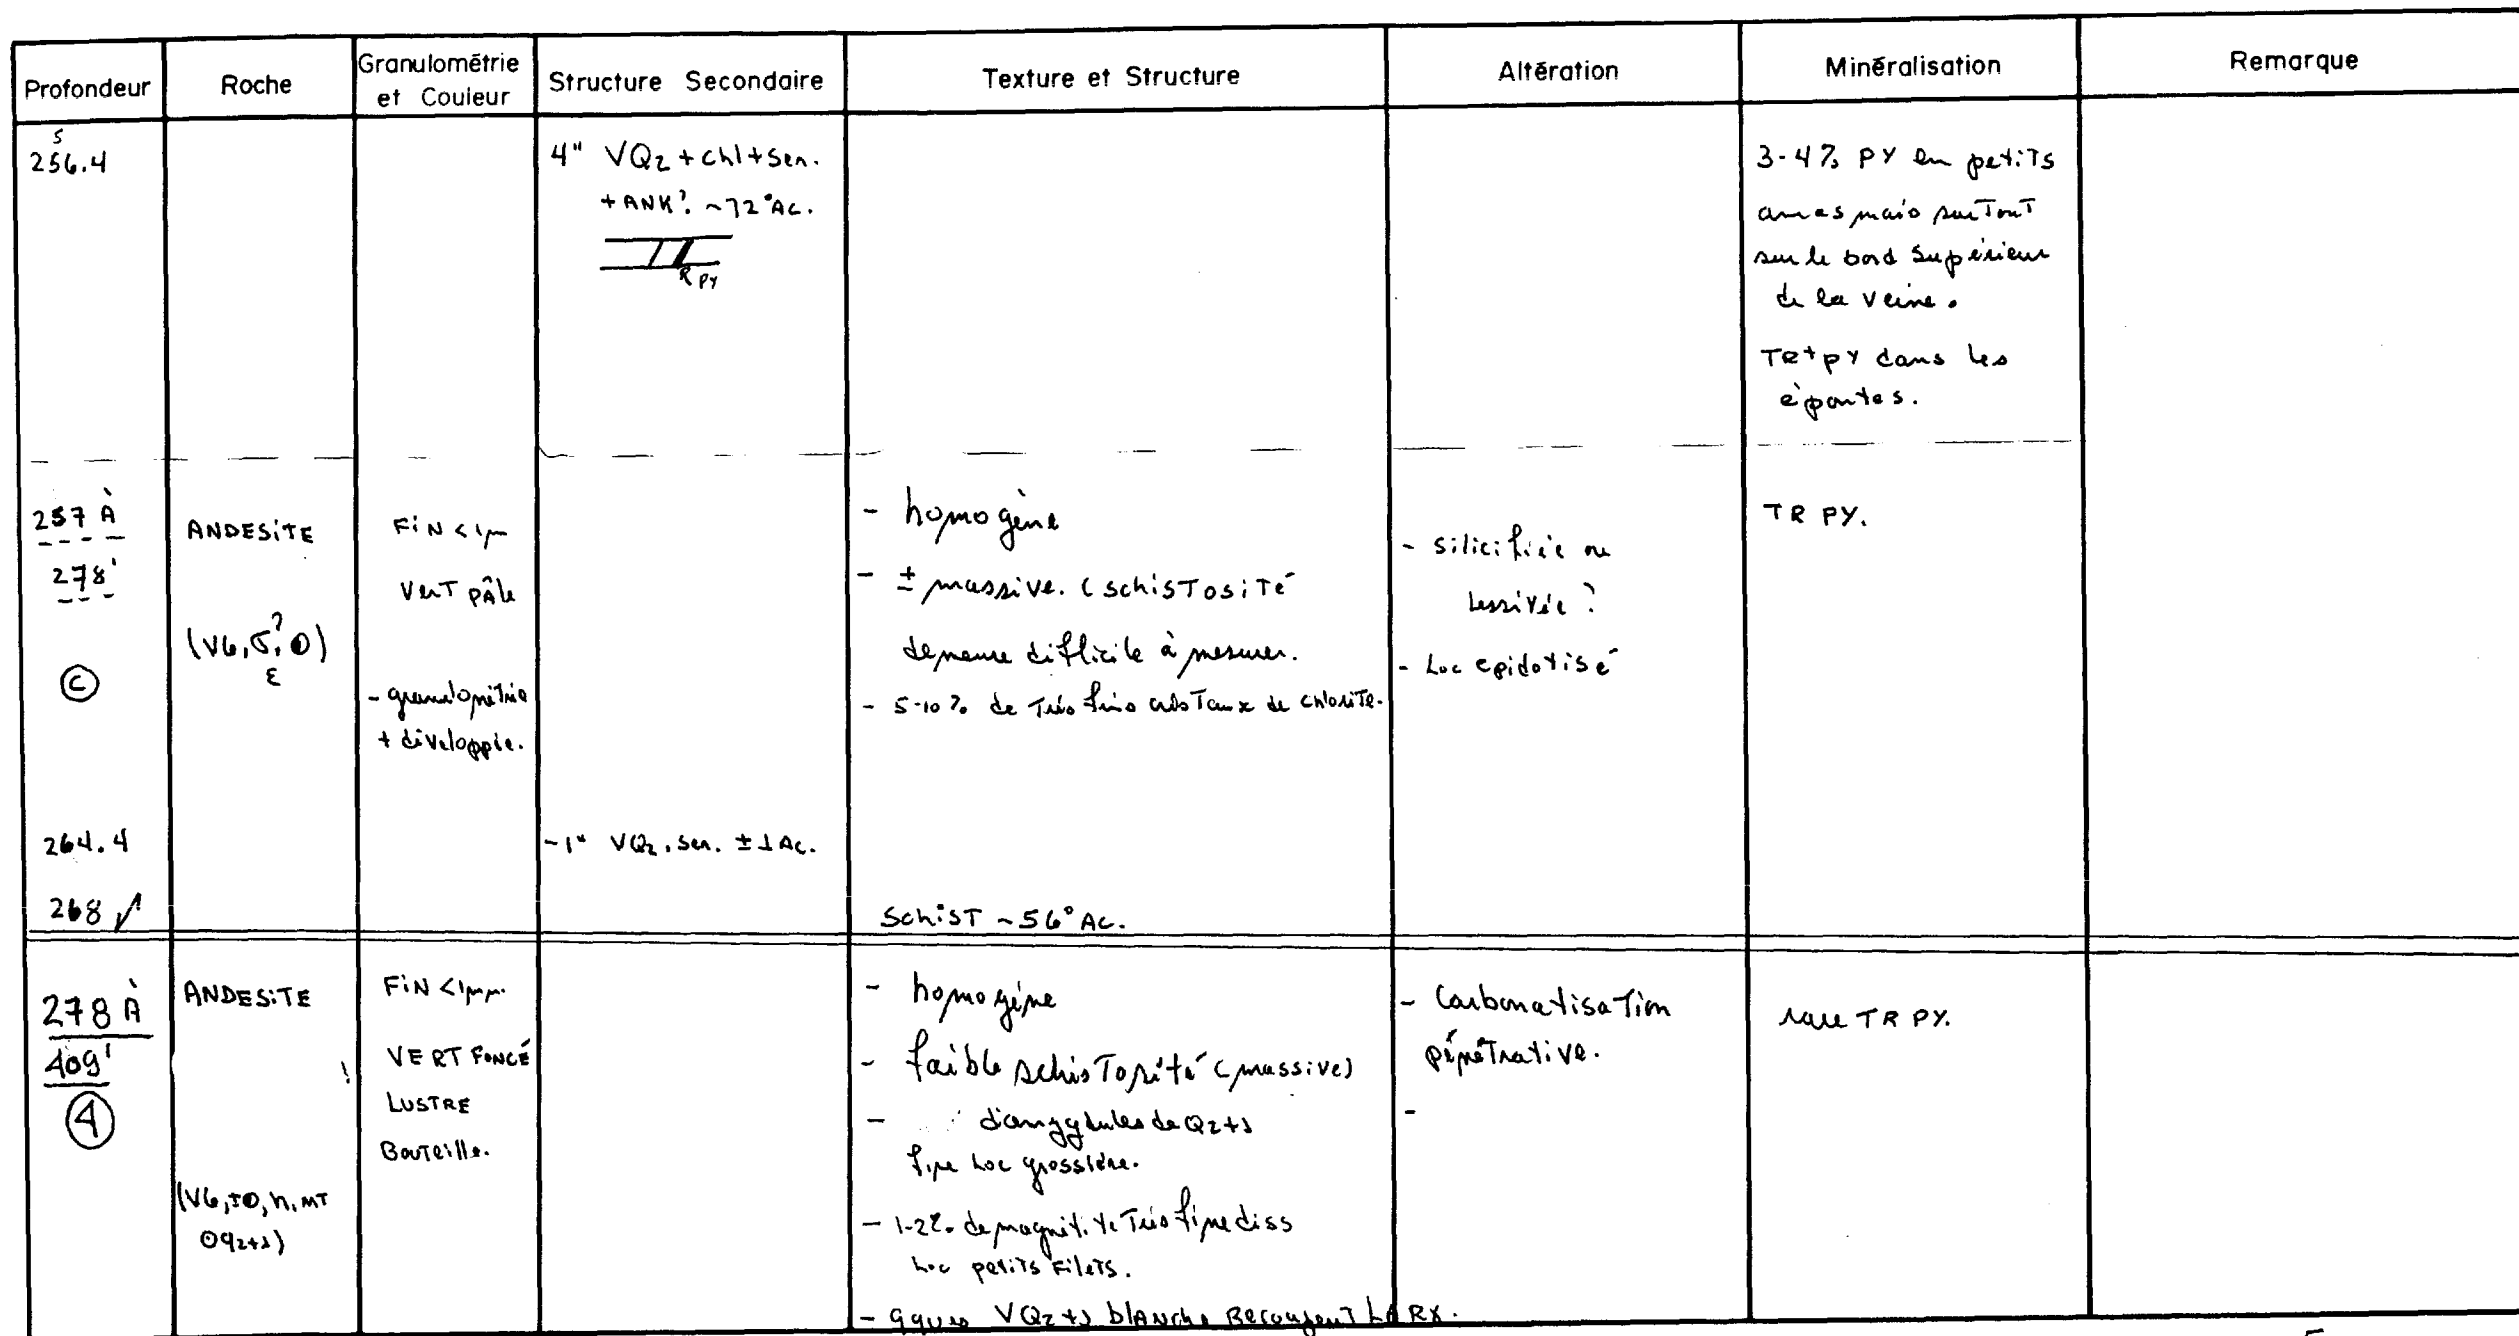 Profondeur
Roche
Granulométrie
et Couleur
Structure Secondaire
Texture et Structure
Altération
Minéralisation
Remarque
5
256.4
4" VQz + chl + Ser.
+ ANK? ~72°AC.
PY
3-4% PY en petits
amas mais surtout
sur le bord supérieur
de la veine.
TR + PY dans les
épontes.
257 À
278'
C
ANDESITE
(V6,
FiN <1m
VerT pâle
- granulométrie
+ développée.
- homogène
- ± massive. (schisTosiTé
demeure difficile à mesurer.
- 5-10% de Très fins cristaux de chlorite.
- silicifiée ou
lessivée ?
- Loc epidotisé
TR PY.
264.4
~1" VQz, Ser. ± ⊥ AC.
268
SchisT ~56° AC.
278 À
409'
4
ANDESITE
(V6, IO, h, MT
FiN <1mm.
VERT FONCÉ
LUSTRE
BouTeille.
- homogène
- faible schisTosité (massive)
- d'amygdules de Qz+J
fine Loc grossière.
- 1-2% de magnétite Très fine diss
Loc petits FileTs.
- qques VQz+J blAnche RecoupenT LA RX.
- Carbonatisation
pénétrative.
-
rare TR PY.